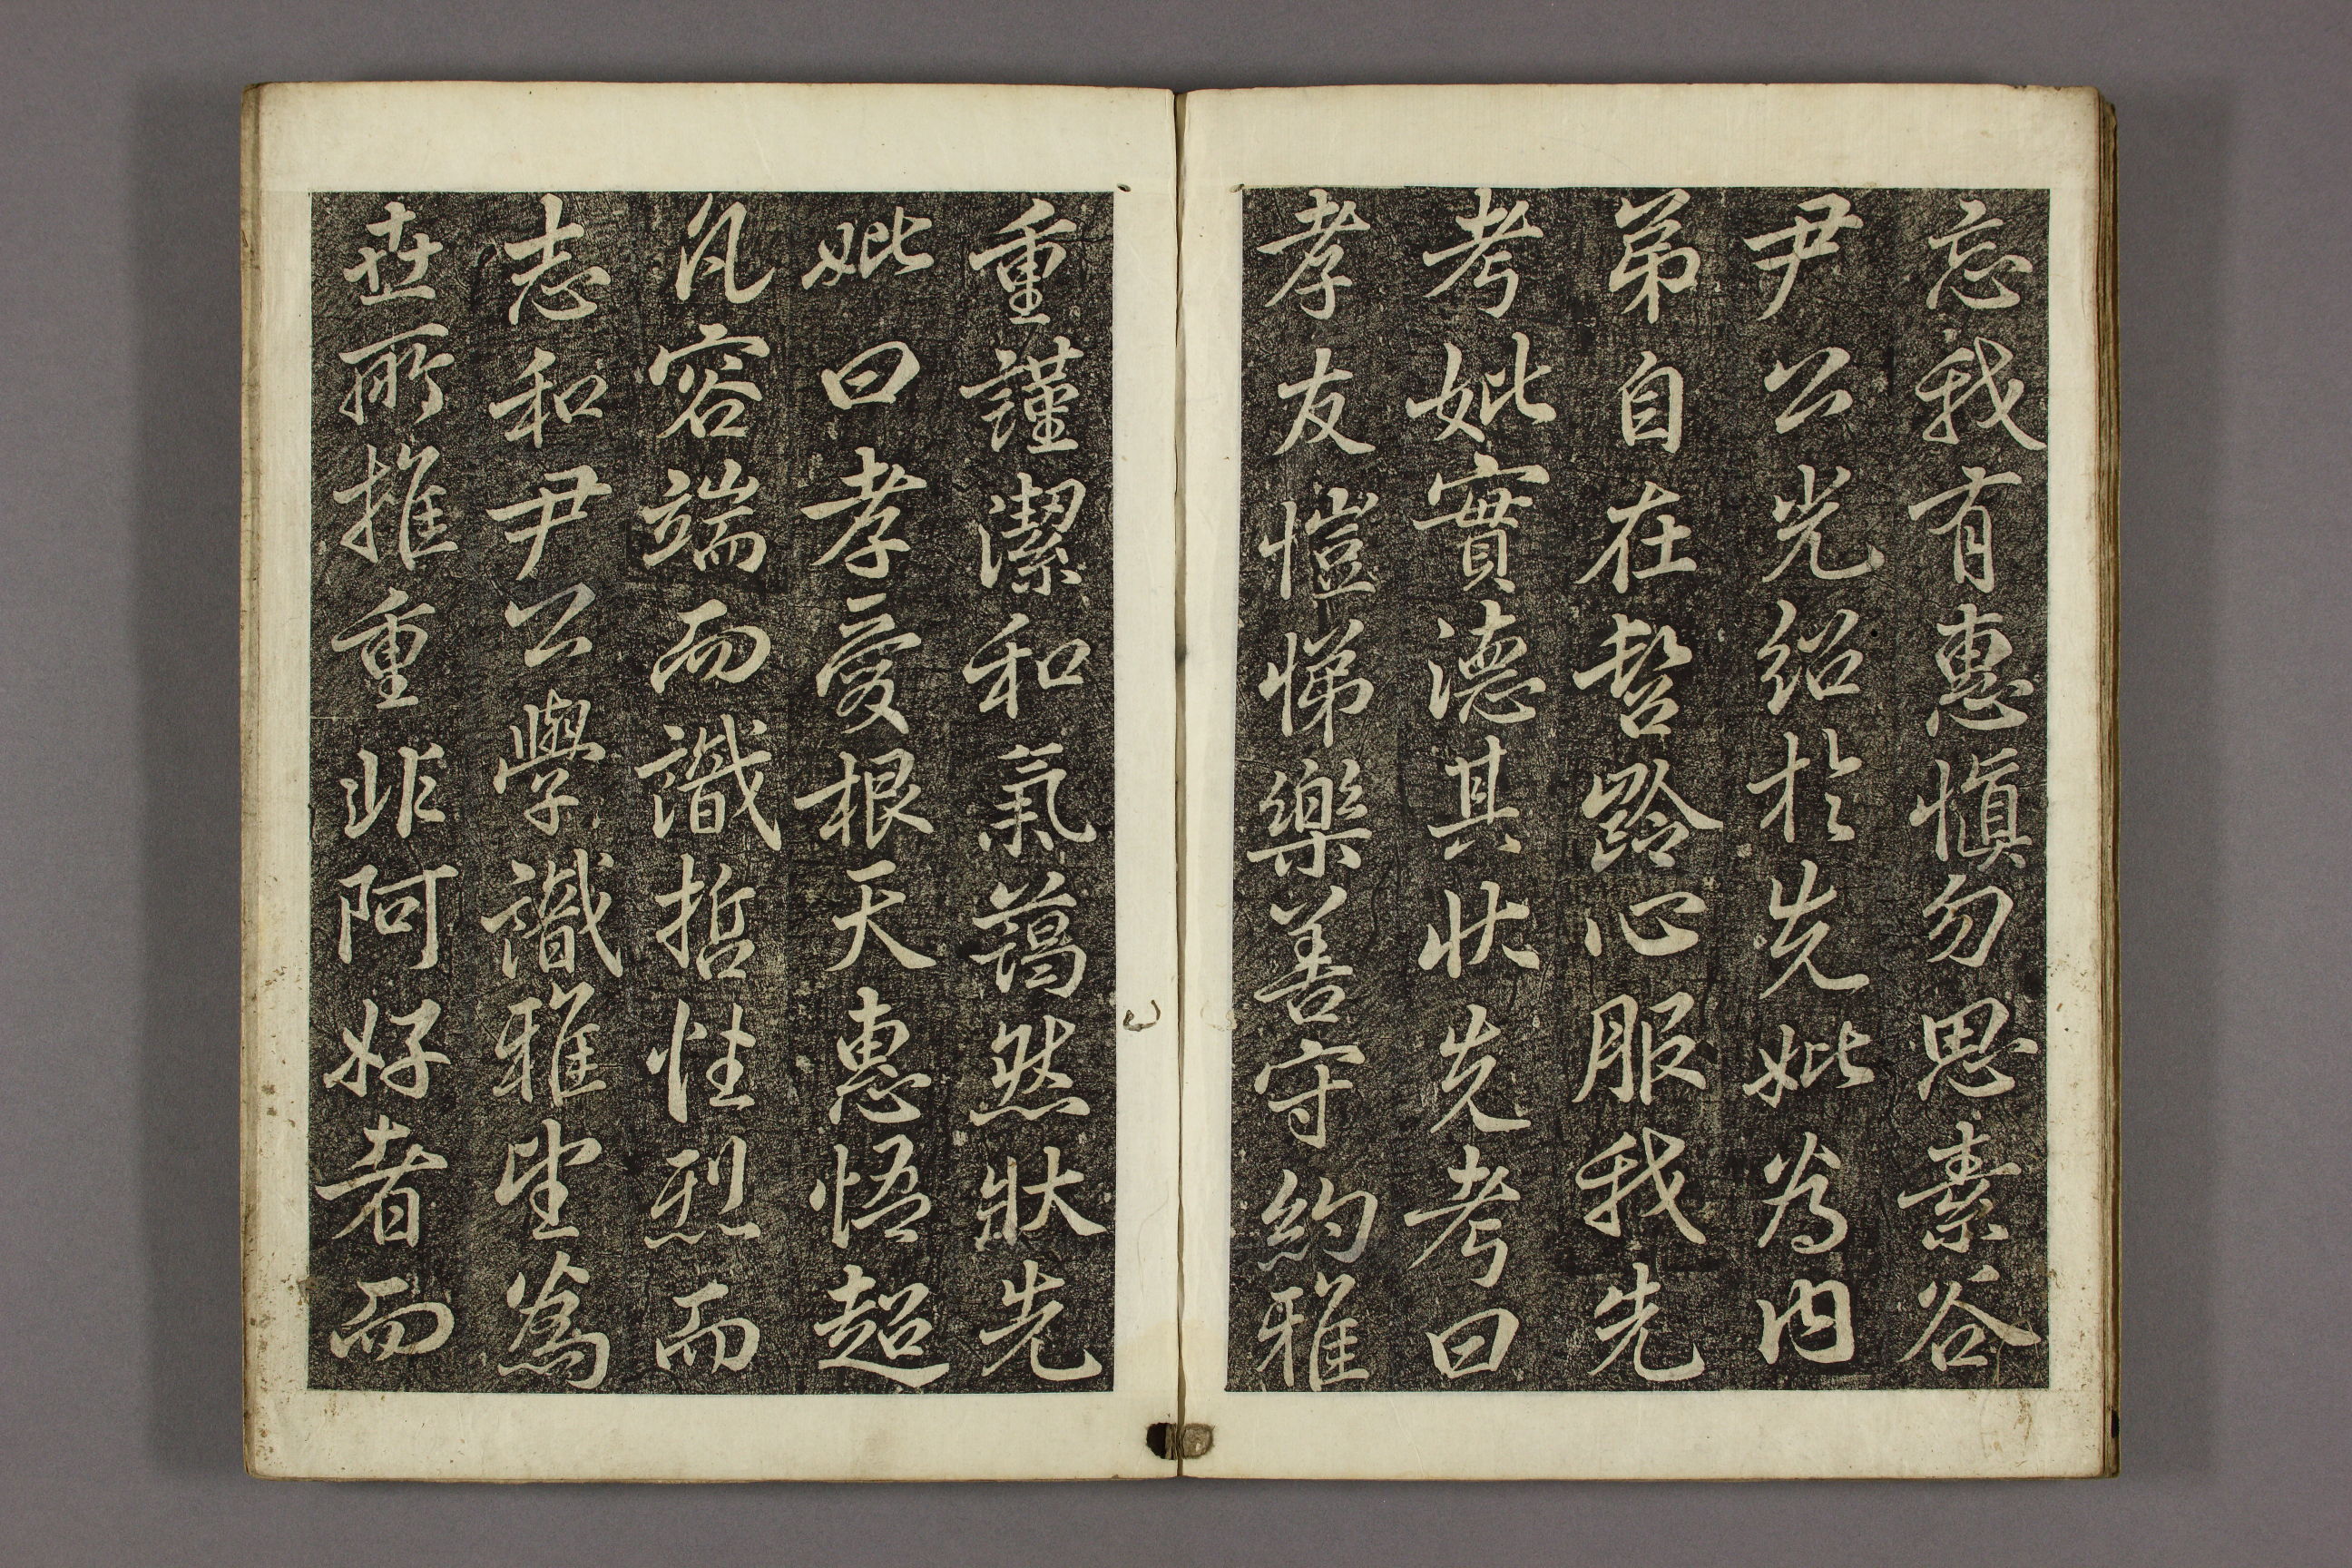 忘我有惠愼勿思素谷
尹公光紹於先妣為內
弟自在髫齡心服我先
考妣實德其狀先考曰
孝友愷悌樂善守約雅
重謹潔和氣藹然狀先
妣曰孝愛根天惠悟超
凡容端而識哲性烈而
志和尹公學識雅望爲
世所推重非阿好者而